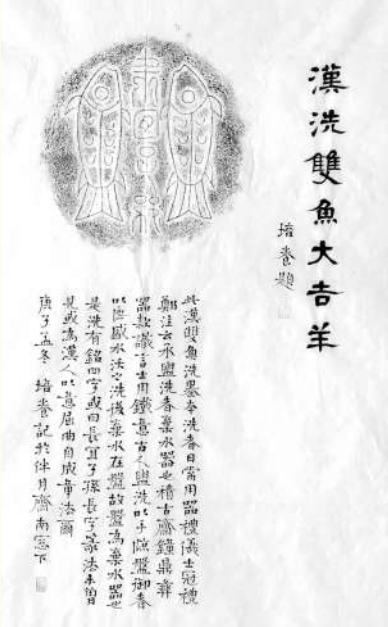 漢洗雙魚大吉羊
培養題
此漢雙魚洗墨本洗者日常用器禮儀士冠禮
鄭注云水盥洗者棄水器也稽古齋鐘鼎彝
器款識言士用鐵意古人盥洗以手臨盤御者
以匜盛水沃之洗後棄水在盤故盤為棄水器也
是洗有銘四字或曰長宜子孫長字篆法未有
見或為漢人以意屈曲自成章法爾
庚子孟冬培養記於伴月齋南窗下